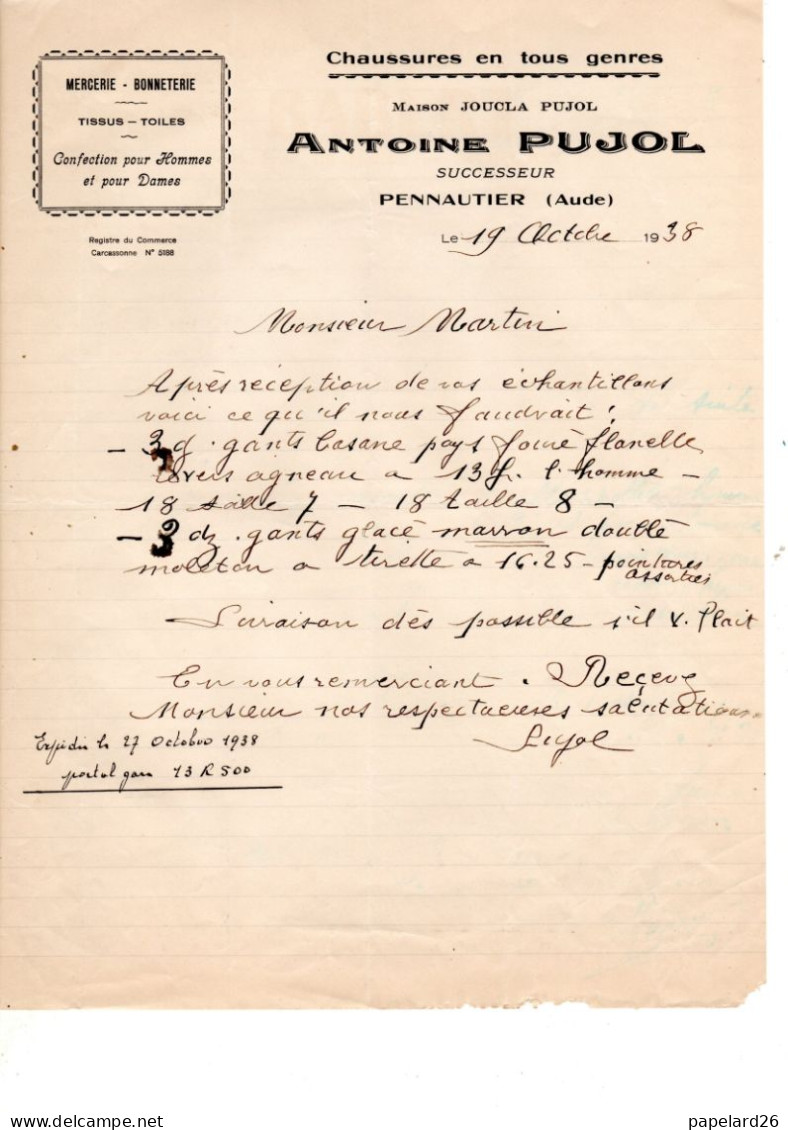 MERCERIE - BONNETERIE
TISSUS - TOILES
Confection pour Hommes
et pour Dames
Registre du Commerce
Carcassonne N° 5188
Chaussures en tous genres
MAISON JOUCLA PUJOL
ANTOINE PUJOL
SUCCESSEUR
PENNAUTIER (Aude)
Le 19 Octobre 1938
Monsieur Martin
Après réception de vos échantillons
voici ce qu'il nous faudrait :
- 3 d. gants basane pays fourré flanelle
revers agneau à 13 f. l'homme -
18 taille 7 - 18 taille 8 -
- 3 dz. gants glacé marron doublé
moleton a tirette a 16.25 - pointures
assorties
Livraison dès possible s'il v. Plait
En vous remerciant. Reçevez
Monsieur nos respectueuses salutations.
Pujol
Expédié le 27 Octobre 1938
postal gare 13 R 500
delcampe.net
papelard26